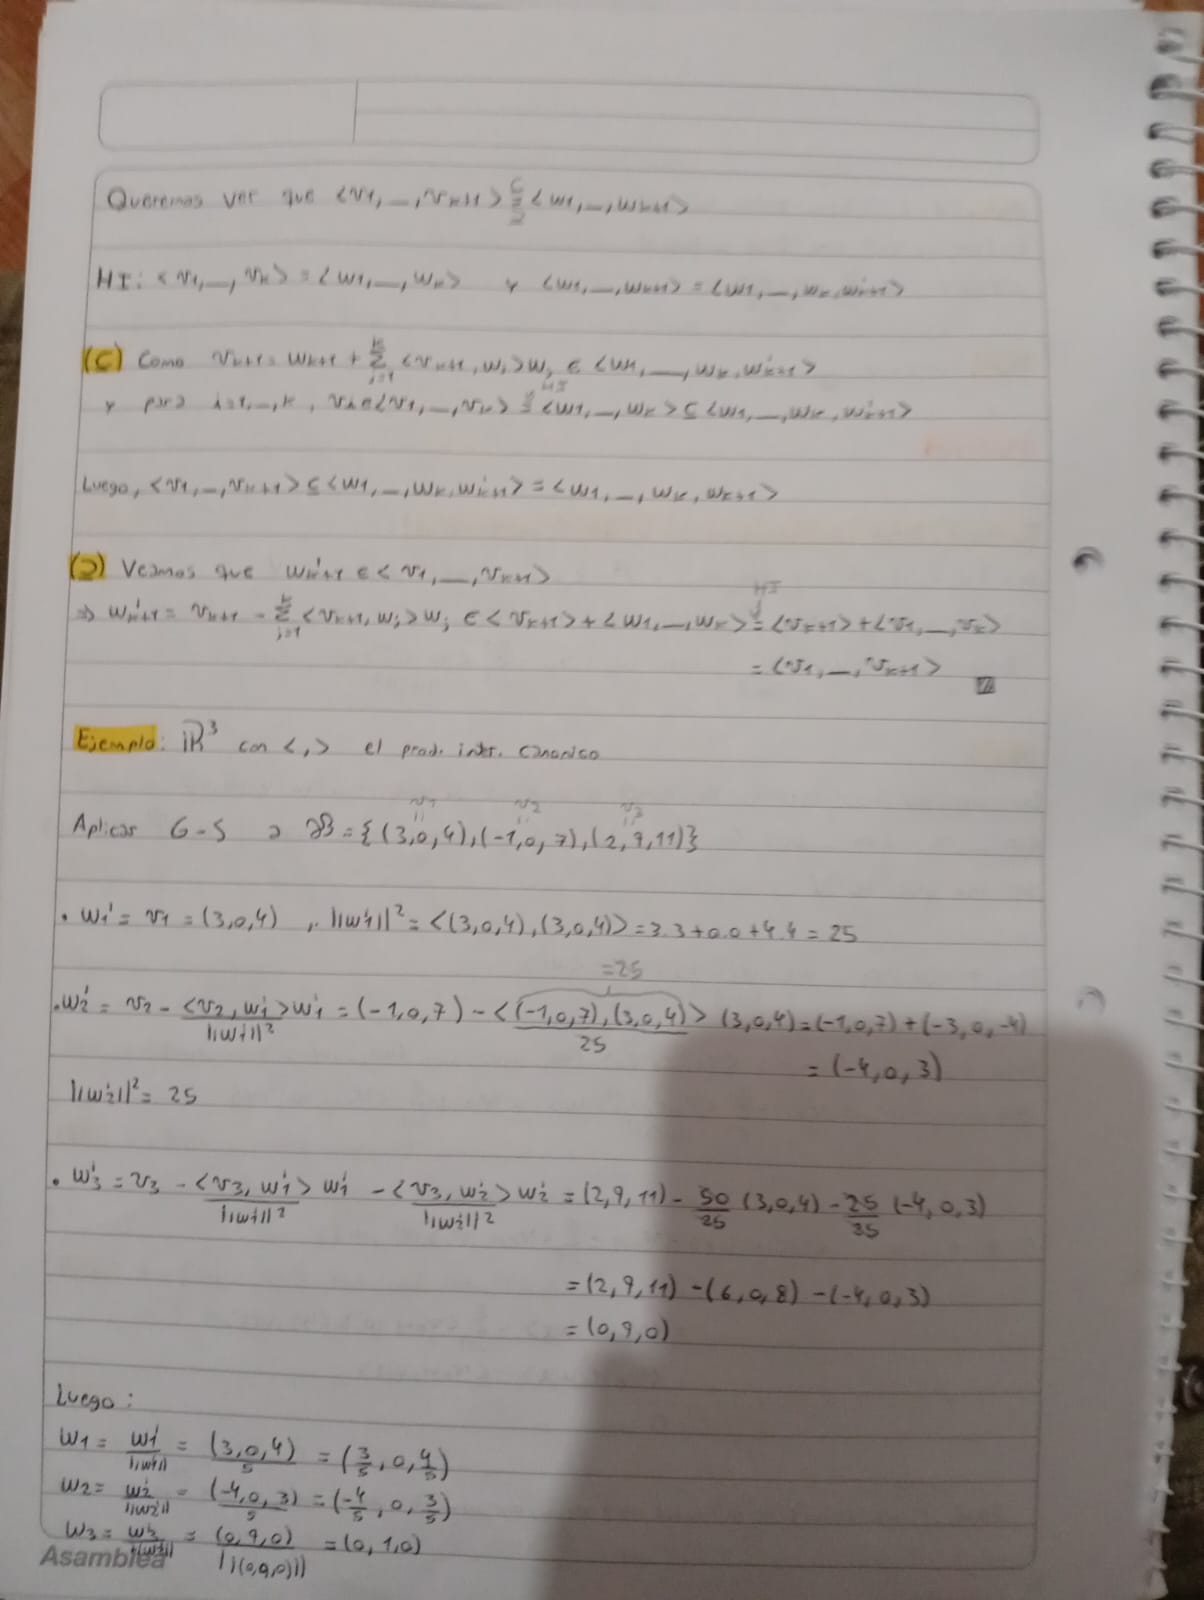 Queremos ver que <v1,_,vk+1> ⊆/⊇ <w1,_,wk+1>
HI: <v1,_,vk> = <w1,_,wk> y <w1,_,wk+1> = <w1,_,wk,w'k+1>
(⊆) Como vk+1 = w'k+1 + Σ_{j=1}^{k} <vk+1, wj>wj ∈ <w1,_,wk,w'k+1>
HI
y para i=1,_,k, vi ∈ <v1,_,vk> = <w1,_,wk> ⊆ <w1,_,wk,w'k+1>
Luego, <v1,_,vk+1> ⊆ <w1,_,wk,w'k+1> = <w1,_,wk,wk+1>
(⊇) Veamos que w'k+1 ∈ <v1,_,vk+1>
HI
⇒ w'k+1 = vk+1 - Σ_{j=1}^{k} <vk+1, wj>wj ∈ <vk+1> + <w1,_,wk> = <vk+1> + <v1,_,vk>
= <v1,_,vk+1>
Ejemplo: ℝ³ con <,> el prod. inter. canonico
v1 v2 v3
Aplicar G-S a B = {(3,0,4),(-1,0,7),(2,9,11)}
. w1' = v1 = (3,0,4) , ||w1'||² = <(3,0,4),(3,0,4)> = 3.3+0.0+4.4 = 25
=25
. w2' = v2 - <v2, w1'>/||w1'||² w1' = (-1,0,7) - <(-1,0,7),(3,0,4)>/25 (3,0,4) = (-1,0,7) + (-3,0,-4)
= (-4,0,3)
||w2'||² = 25
. w3' = v3 - <v3, w1'>/||w1'||² w1' - <v3, w2'>/||w2'||² w2' = (2,9,11) - 50/25 (3,0,4) - 25/35 (-4,0,3)
= (2,9,11) - (6,0,8) - (-4,0,3)
= (0,9,0)
Luego:
w1 = w1'/||w1'|| = (3,0,4)/5 = (3/5, 0, 4/5)
w2 = w2'/||w2'|| = (-4,0,3)/5 = (-4/5, 0, 3/5)
w3 = w3'/||w3'|| = (0,9,0)/||(0,9,0)|| = (0,1,0)
Asamblea